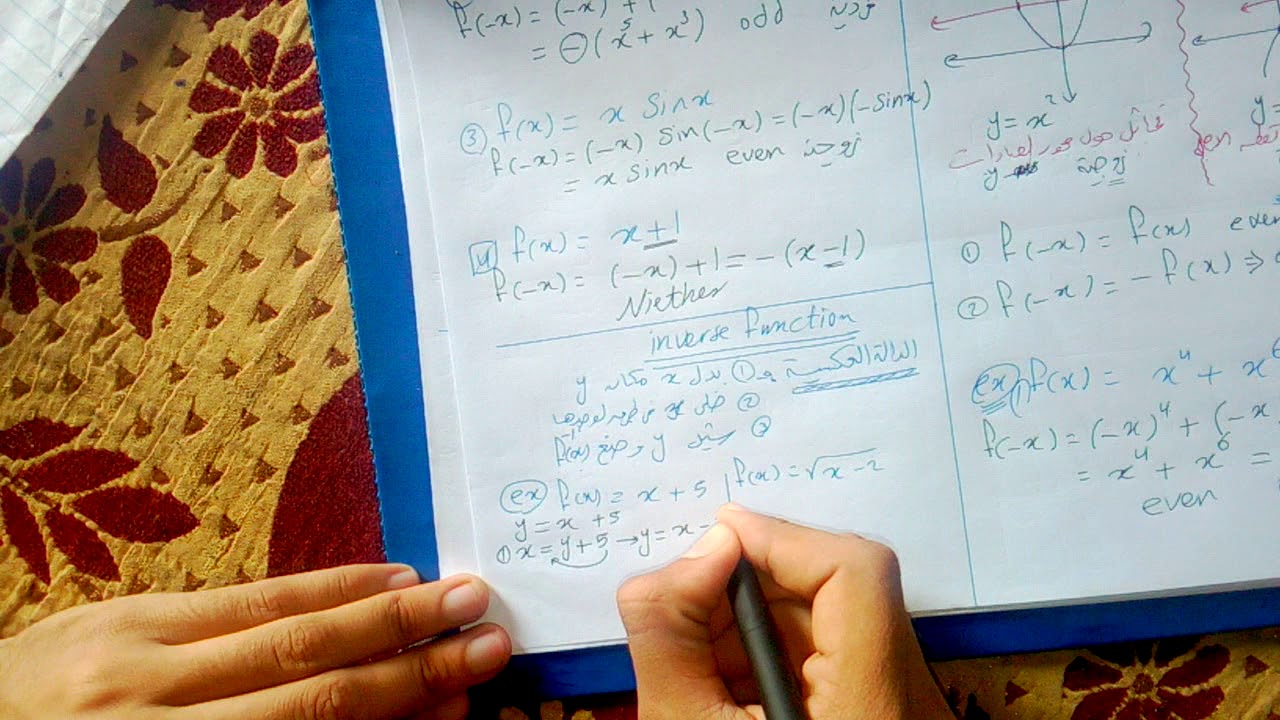 f(-x) = (-x)⁵ + (
= ⊖(x⁵ + x³) odd فردية
③ f(x) = x sinx
f(-x) = (-x) sin(-x) = (-x)(-sinx)
= x sinx even زوجية
4 f(x) = x+1
f(-x) = (-x)+1 = -(x-1)
Niether
inverse function
الدالة العكسية ① بدل x مكان y
②
③ y f⁻¹(x)
ex f(x) = x + 5 | f(x) = √x-2
y = x +5
① x = y+5 → y = x -
y = x²
تماثل حول محور
y زوجية
y =
① f(-x) = f(x) even
② f(-x) = - f(x) ⇒
ex f(x) = x⁴ + x⁶
f(-x) = (-x)⁴ + (-x
= x⁴ + x⁶ =
even